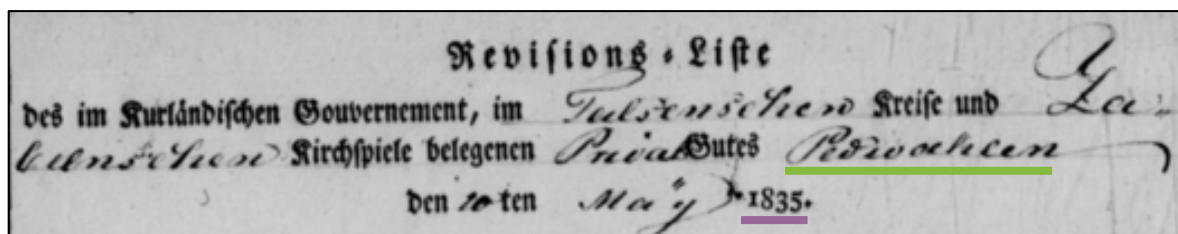 Revisions-Liste
des im Kurländischen Gouvernement, im Talsenschen Kreise und Za-
belnschen Kirchspiele belegenen Privat Gutes Pedwahlen
den 10ten May 1835.